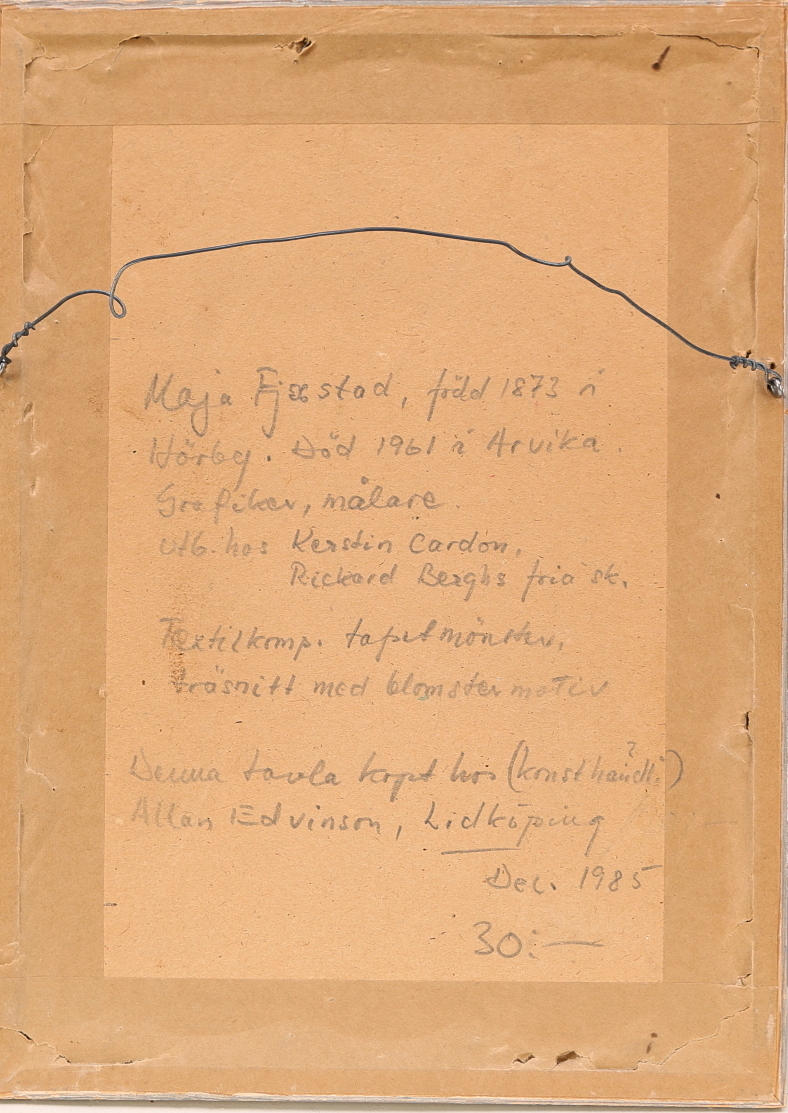 Maja Fjæstad, född 1873 i
Hörby. Död 1961 i Arvika.
Grafiker, målare.
Utb. hos Kerstin Cardon,
Rickard Berghs fria sk.
Textilkomp. tapetmönster,
träsnitt med blomstermotiv
Denna tavla köpt hos (konsthandl.?)
Allan Edvinson, Lidköping
Dec. 1985
30:—